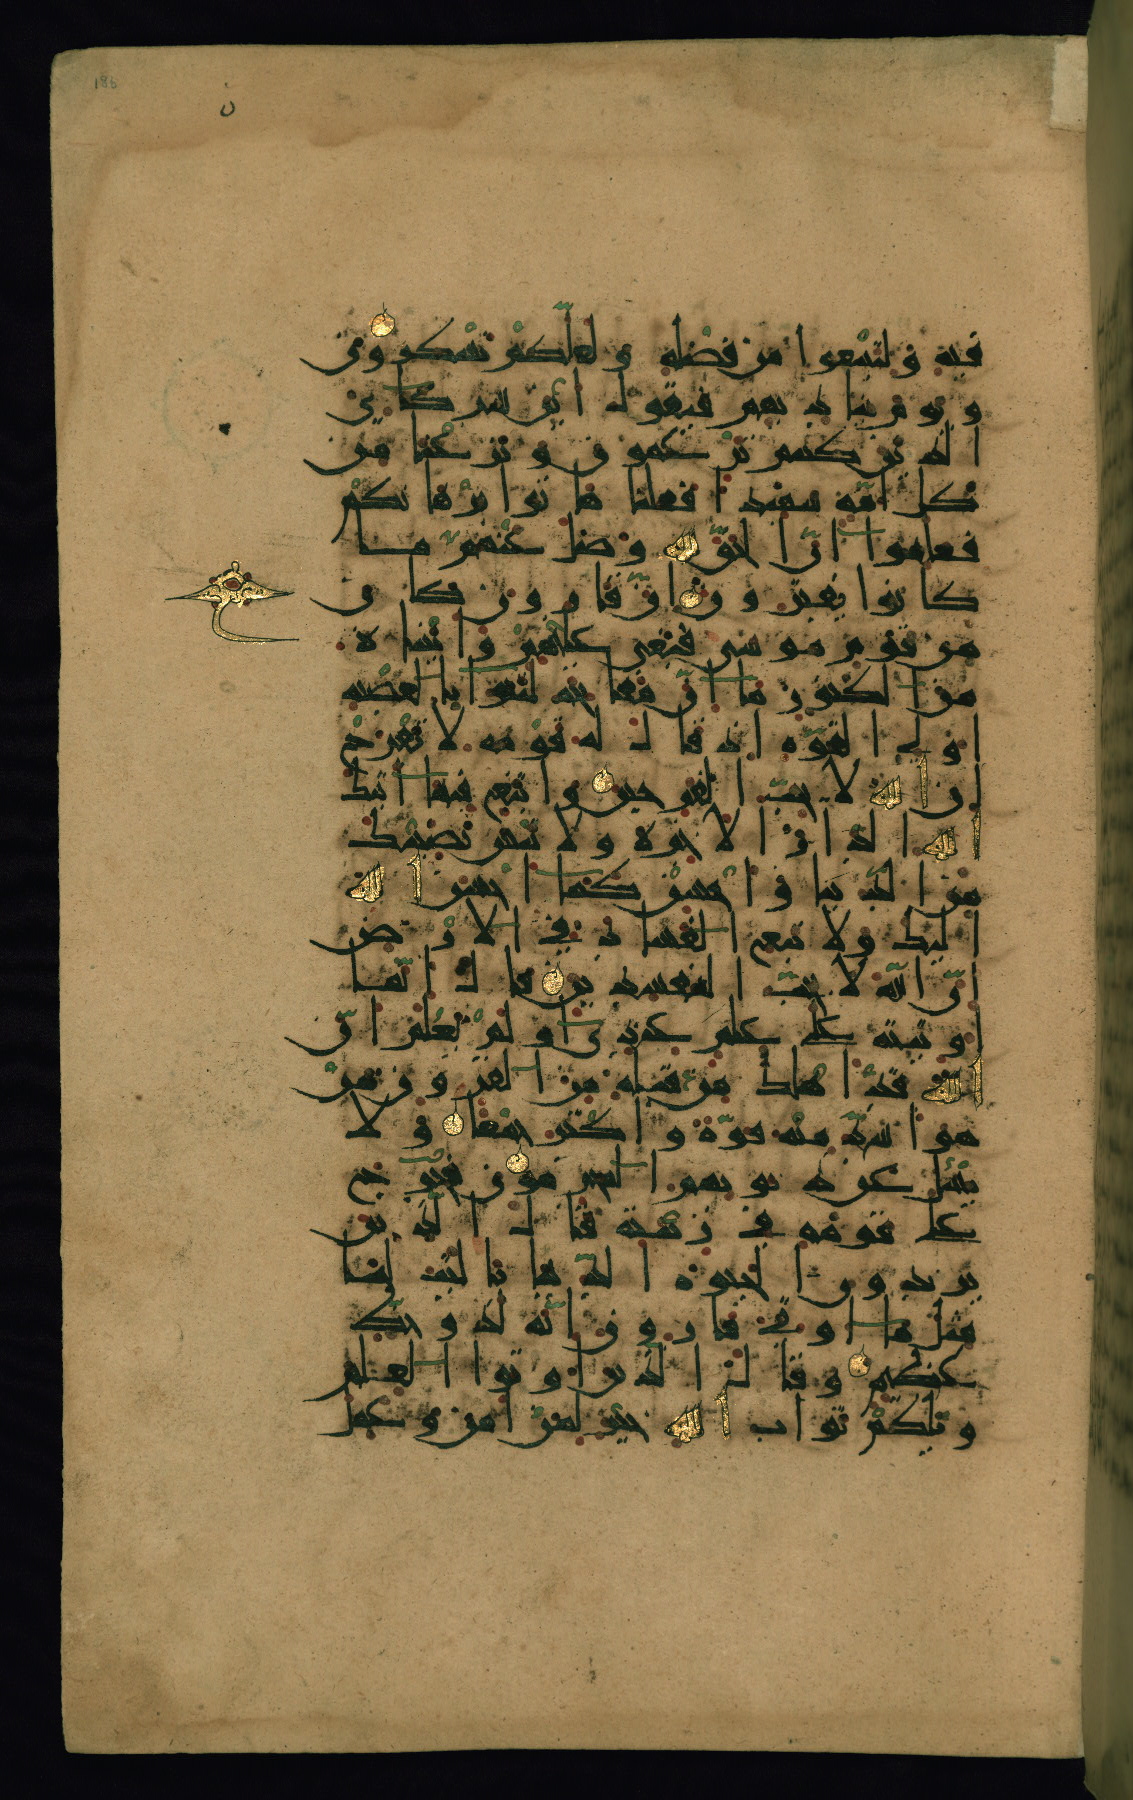 186
فيه ولتبتغوا من فضله ولعلكم تشكرون
ويوم يناديهم فيقول اين شركاءي
الذين كنتم تزعمون ونزعنا من
كل امة شهيدا فقلنا هاتوا برهانكم
فعلموا ان الحق لله وضل عنهم ما
كانوا يفترون ان قارون كان
من قوم موسى فبغى عليهم واتيناه
من الكنوز ما ان مفاتحه لتنوا بالعصبة
اولي القوة اذ قال له قومه لا تفرح
ان الله لا يحب الفرحين وابتغ فيما اتىك
الله الدار الاخرة ولا تنس نصيبك
من الدنيا واحسن كما احسن الله
اليك ولا تبغ الفساد في الارض
ان الله لا يحب المفسدين قال انما
اوتيته على علم عندي اولم يعلم ان
الله قد اهلك من قبله من القرون من
هو اشد منه قوة واكثر جمعا ولا
يسئل عن ذنوبهم المجرمون فخرج
على قومه في زينته قال الذين
يريدون الحيوة الدنيا يا ليت لنا
مثل ما اوتي قارون انه لذو حظ
عظيم وقال الذين اوتوا العلم
ويلكم ثواب الله خير لمن امن وعمل